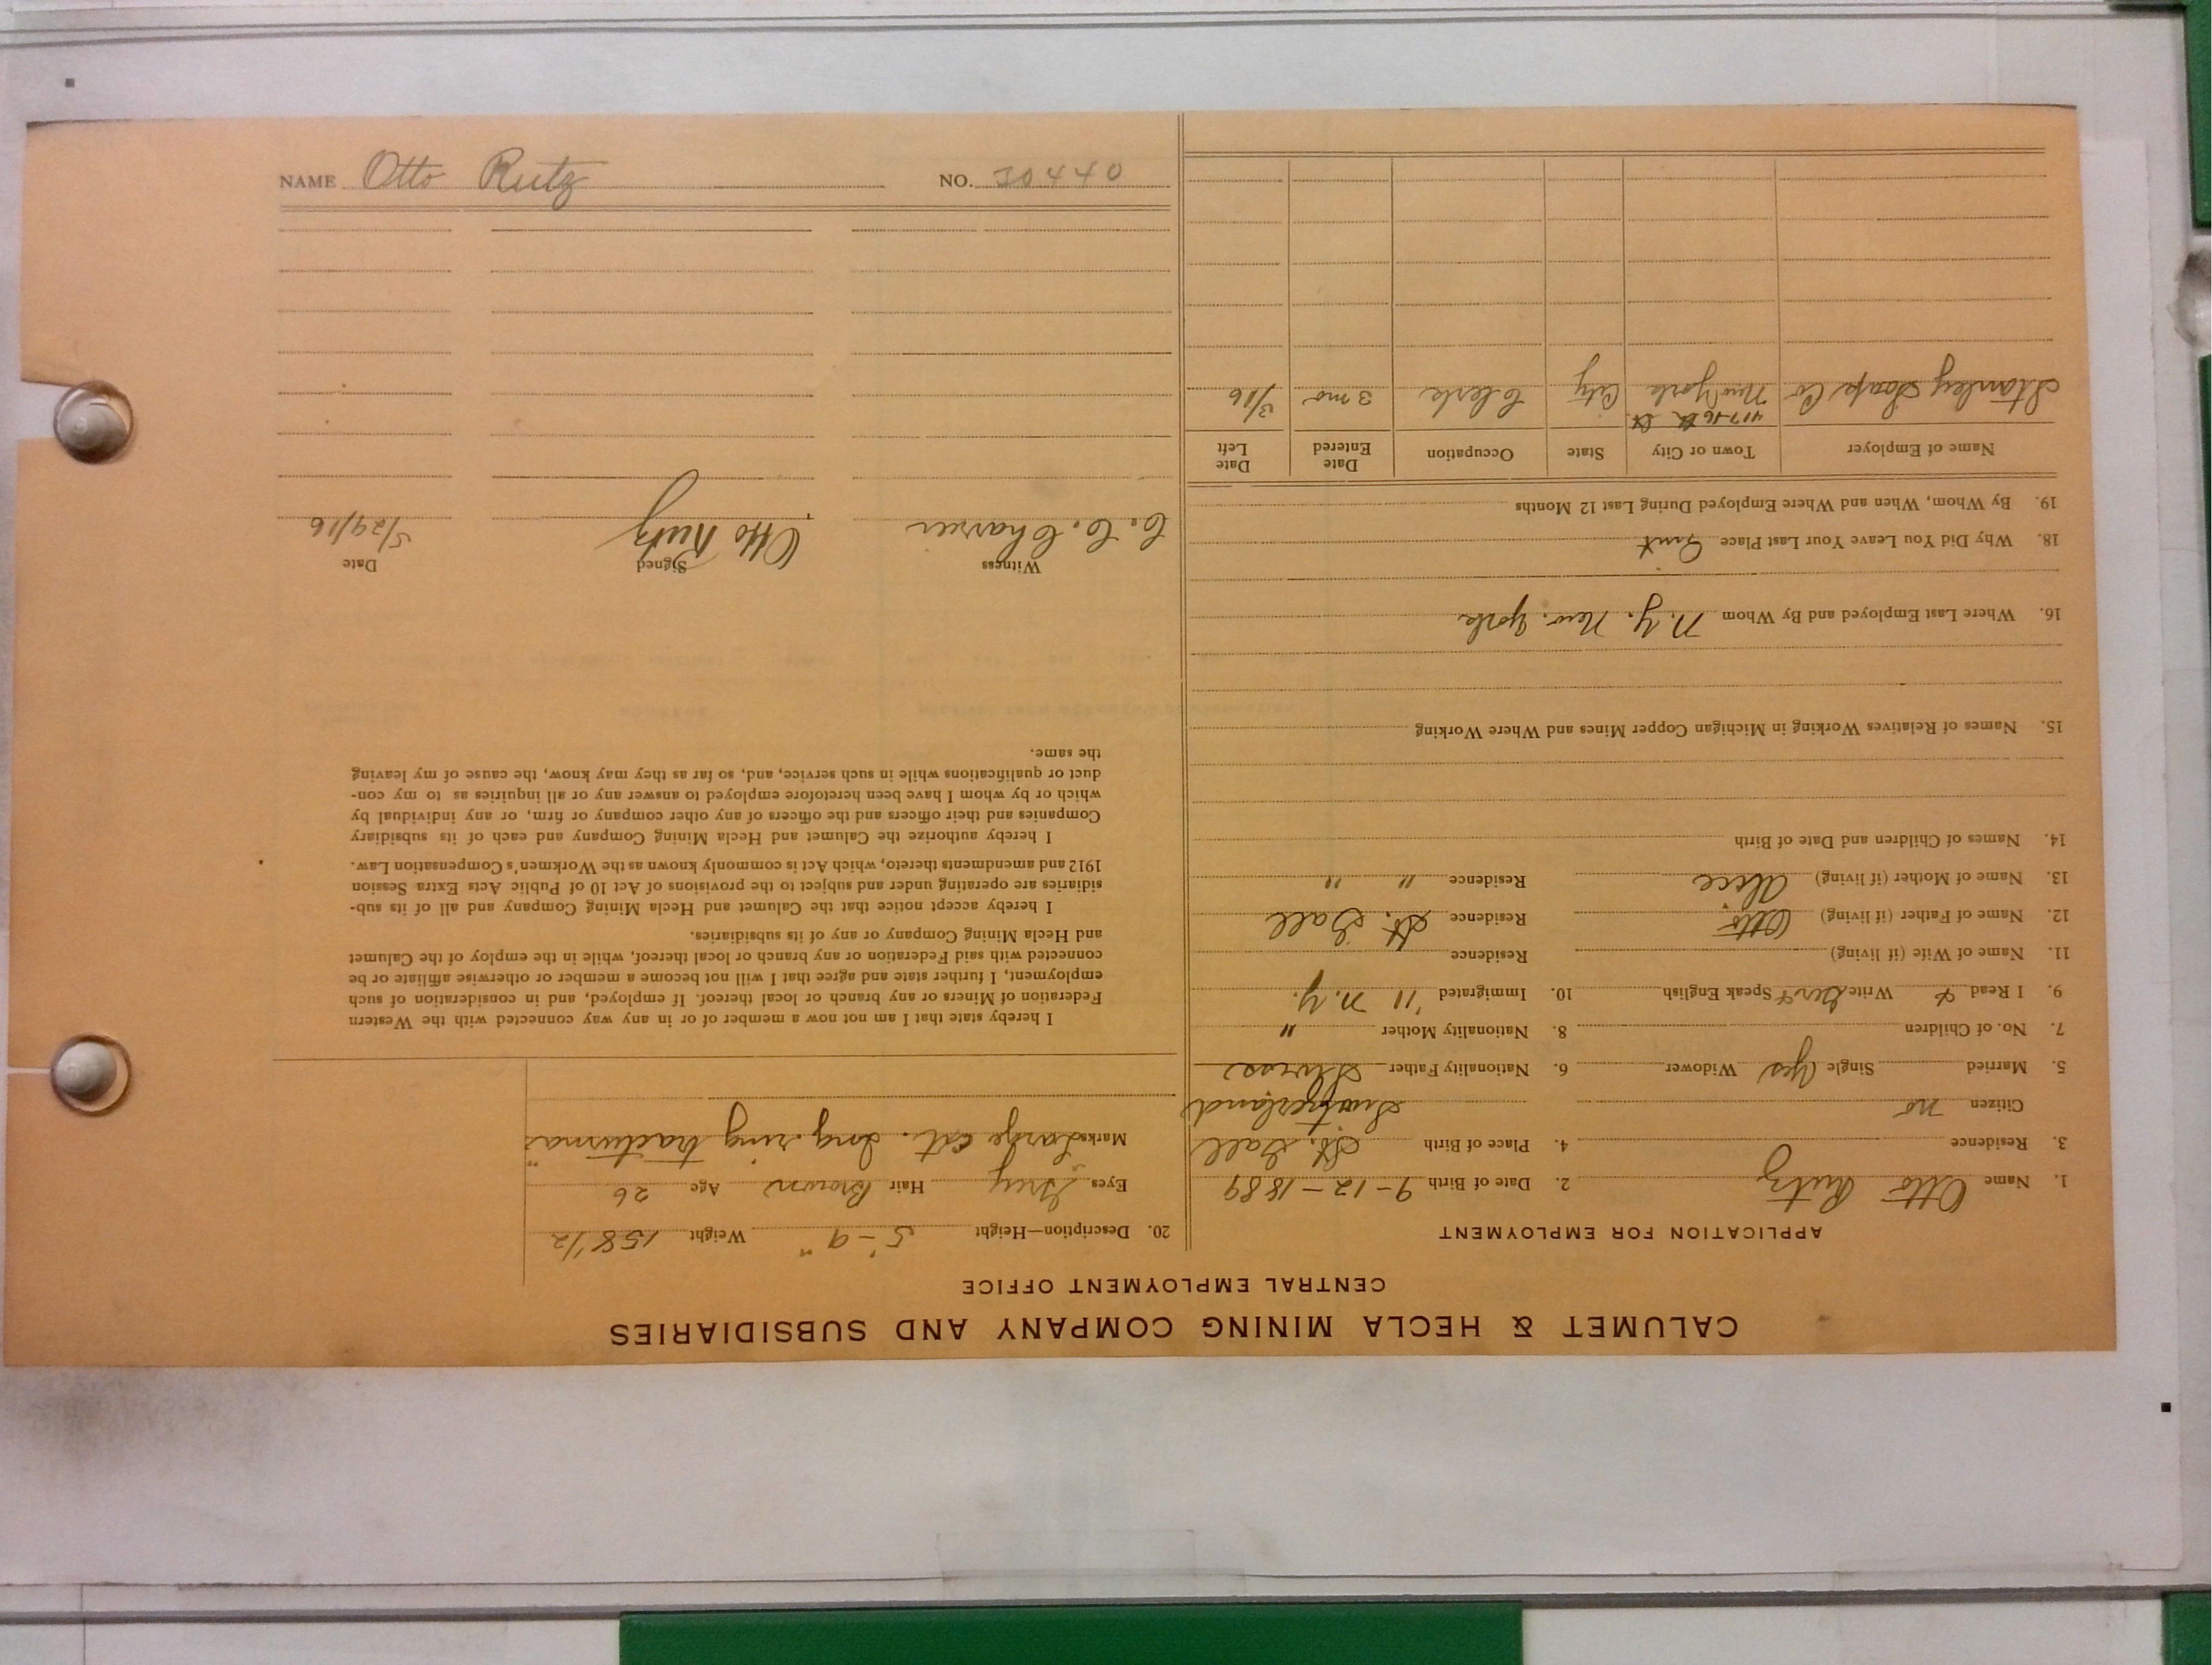 NAME Otto Rutz NO. J0440
CALUMET & HECLA MINING COMPANY AND SUBSIDIARIES
CENTRAL EMPLOYMENT OFFICE
APPLICATION FOR EMPLOYMENT
1. Name Otto Rutz 2. Date of Birth 9-12-1889
3. Residence 4. Place of Birth St. Gall
Citizen no Switzerland
5. Married Single Yes Widower 6. Nationality Father Swiss
7. No. of Children 8. Nationality Mother "
9. I Read & Write Speak English 10. Immigrated '11 N.Y.
11. Name of Wife (if living) Residence
12. Name of Father (if living) Otto Residence St. Gall
13. Name of Mother (if living) Alice Residence " "
14. Names of Children and Date of Birth
15. Names of Relatives Working in Michigan Copper Mines and Where Working
16. Where Last Employed and By Whom N.Y. New York
18. Why Did You Leave Your Last Place Quit
19. By Whom, When and Where Employed During Last 12 Months
Name of Employer Town or City State Occupation Date Entered Date Left
417-16th St
Stanley Soap Co New York City Clerk 3 mo 3/16
20. Description—Height 5'-9" Weight 158 1/2
Eyes Grey Hair Brown Age 26
Marks Large ring
I hereby state that I am not now a member of or in any way connected with the Western
Federation of Miners or any branch or local thereof. If employed, and in consideration of such
employment, I further state and agree that I will not become a member or otherwise affiliate or be
connected with said Federation or any branch or local thereof, while in the employ of the Calumet
and Hecla Mining Company or any of its subsidiaries.
I hereby accept notice that the Calumet and Hecla Mining Company and all of its sub-
sidiaries are operating under and subject to the provisions of Act 10 of Public Acts Extra Session
1912 and amendments thereto, which Act is commonly known as the Workmen's Compensation Law.
I hereby authorize the Calumet and Hecla Mining Company and each of its subsidiary
Companies and their officers and the officers of any other company or firm, or any individual by
which or by whom I have been heretofore employed to answer any or all inquiries as to my con-
duct or qualifications while in such service, and, so far as they may know, the cause of my leaving
the same.
Witness Signed Date
C. C. Otto Rutz 5/24/16